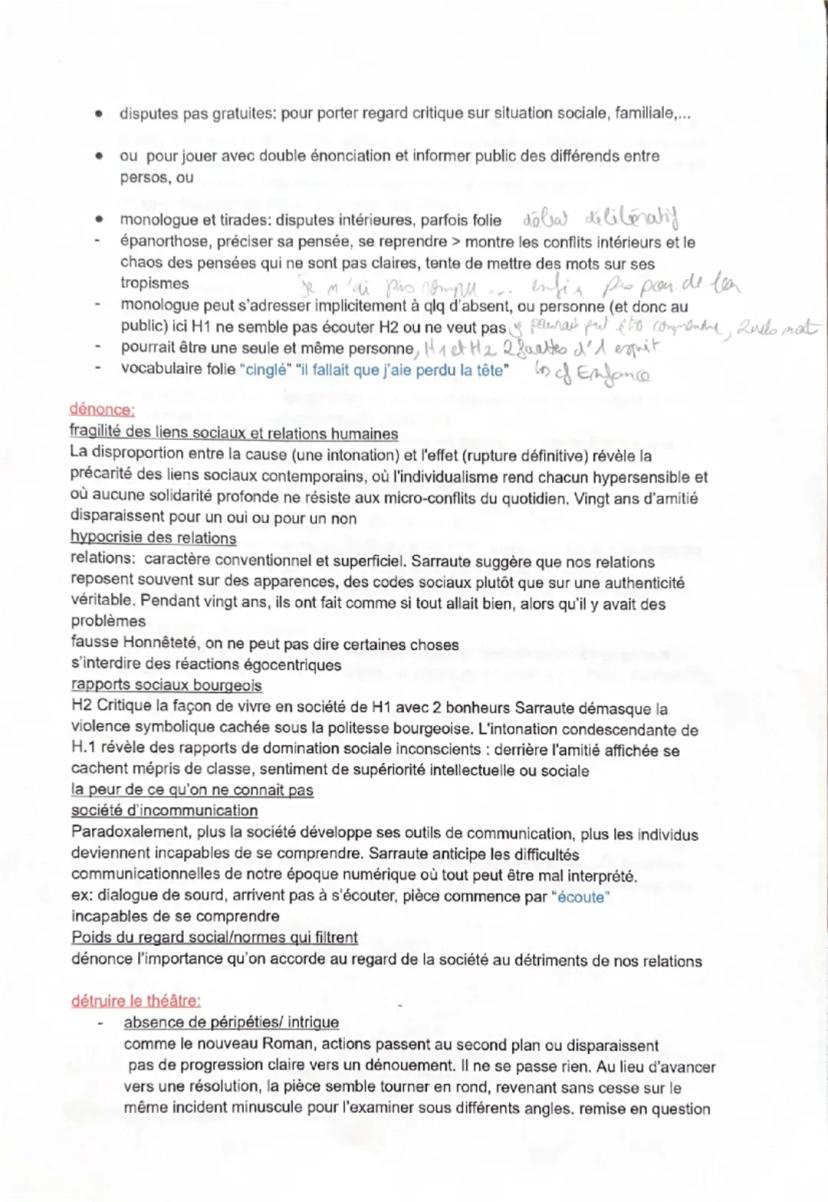 • disputes pas gratuites: pour porter regard critique sur situation sociale, familiale,...
• ou pour jouer avec double énonciation et informer public des différends entre
persos, ou
• monologue et tirades: disputes intérieures, parfois folie débat délibératif
- épanorthose, préciser sa pensée, se reprendre > montre les conflits intérieurs et le
chaos des pensées qui ne sont pas claires, tente de mettre des mots sur ses
tropismes je n'ai pas rompu ... enfin pas pour de bon
- monologue peut s'adresser implicitement à qlq d'absent, ou personne (et donc au
public) ici H1 ne semble pas écouter H2 ou ne veut pas comprendre,
- pourrait être une seule et même personne, H1 et H2 2 facettes d'1 esprit
- vocabulaire folie "cinglé" "il fallait que j'aie perdu la tête" cf Enfance
dénonce:
fragilité des liens sociaux et relations humaines
La disproportion entre la cause (une intonation) et l'effet (rupture définitive) révèle la
précarité des liens sociaux contemporains, où l'individualisme rend chacun hypersensible et
où aucune solidarité profonde ne résiste aux micro-conflits du quotidien. Vingt ans d'amitié
disparaissent pour un oui ou pour un non
hypocrisie des relations
relations: caractère conventionnel et superficiel. Sarraute suggère que nos relations
reposent souvent sur des apparences, des codes sociaux plutôt que sur une authenticité
véritable. Pendant vingt ans, ils ont fait comme si tout allait bien, alors qu'il y avait des
problèmes
fausse Honnêteté, on ne peut pas dire certaines choses
s'interdire des réactions égocentriques
rapports sociaux bourgeois
H2 Critique la façon de vivre en société de H1 avec 2 bonheurs Sarraute démasque la
violence symbolique cachée sous la politesse bourgeoise. L'intonation condescendante de
H.1 révèle des rapports de domination sociale inconscients : derrière l'amitié affichée se
cachent mépris de classe, sentiment de supériorité intellectuelle ou sociale
la peur de ce qu'on ne connait pas
société d'incommunication
Paradoxalement, plus la société développe ses outils de communication, plus les individus
deviennent incapables de se comprendre. Sarraute anticipe les difficultés
communicationnelles de notre époque numérique où tout peut être mal interprété.
ex: dialogue de sourd, arrivent pas à s'écouter, pièce commence par "écoute"
incapables de se comprendre
Poids du regard social/normes qui filtrent
dénonce l'importance qu'on accorde au regard de la société au détriments de nos relations
détruire le théâtre:
- absence de péripéties/ intrigue
comme le nouveau Roman, actions passent au second plan ou disparaissent
pas de progression claire vers un dénouement. Il ne se passe rien. Au lieu d'avancer
vers une résolution, la pièce semble tourner en rond, revenant sans cesse sur le
même incident minuscule pour l'examiner sous différents angles. remise en question